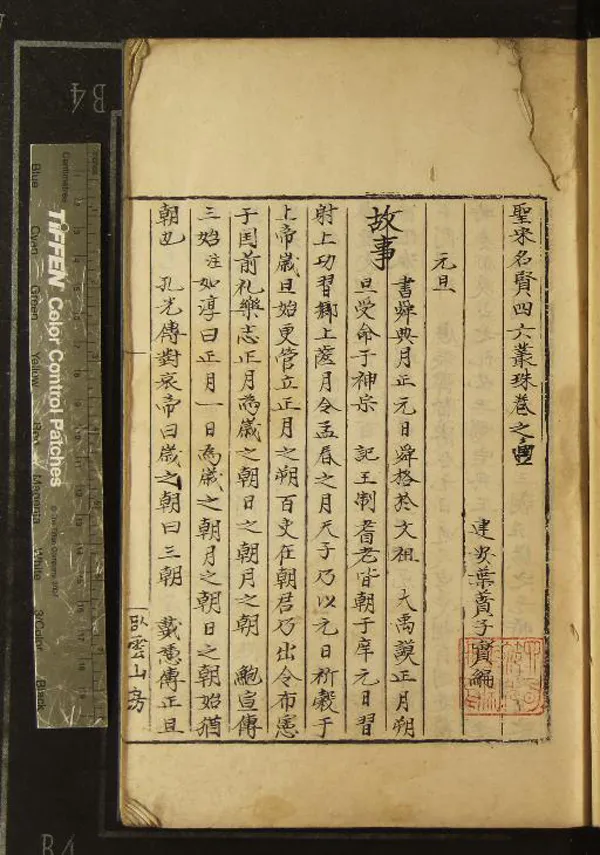 聖宋名賢四六叢珠卷之
建安葉蕡子實編
元旦
故事
書舜典月正元日舜格於文祖 大禹謨正月朔
旦受命于神宗 記王制耆老皆朝于庠元日習
射上功習鄉上齒月令孟春之月天子乃以元日祈穀于
上帝歲旦始更管立正月之朔百吏在朝君乃出令布憲
于国前礼樂志正月為歲之朝日之朝月之朝 鮑宣傳
三始注如淳曰正月一日為歲之朝月之朝日之朝始猶
朝也 孔光傳對哀帝曰歲之朝曰三朝 戴憑傳正旦
臥雲山房
TIFFEN Color Control Patches
© The Tiffen Company, 2007
Centimetres
Blue
Cyan
Green
Yellow
Red
Magenta
White
3/Color
Black
B4
B4